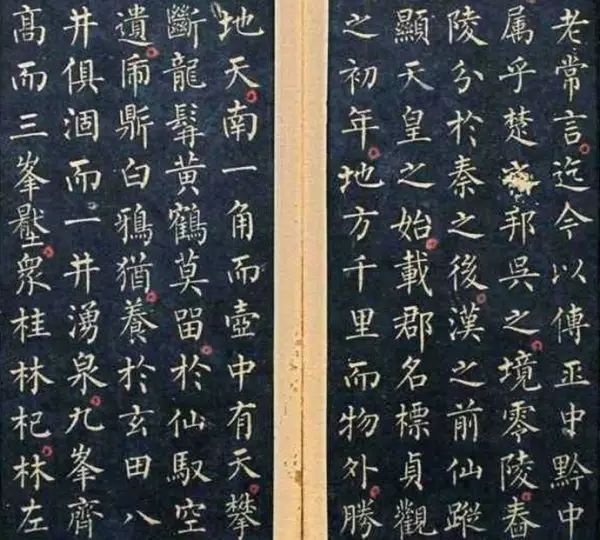 老常言迄今以傳巫中黔中
属乎楚邦吳之境零陵舂
陵分於秦之後漢之前仙蹤
顯天皇之始載郡名標貞觀
之初年地方千里而物外勝
地天南一角而壺中有天攀
斷龍髯黃鶴莫留於仙馭空
遺鼎白鴉猶養於玄田八
井俱涸而一井湧泉九峯齊
髙而三峯壓衆桂林杞林左